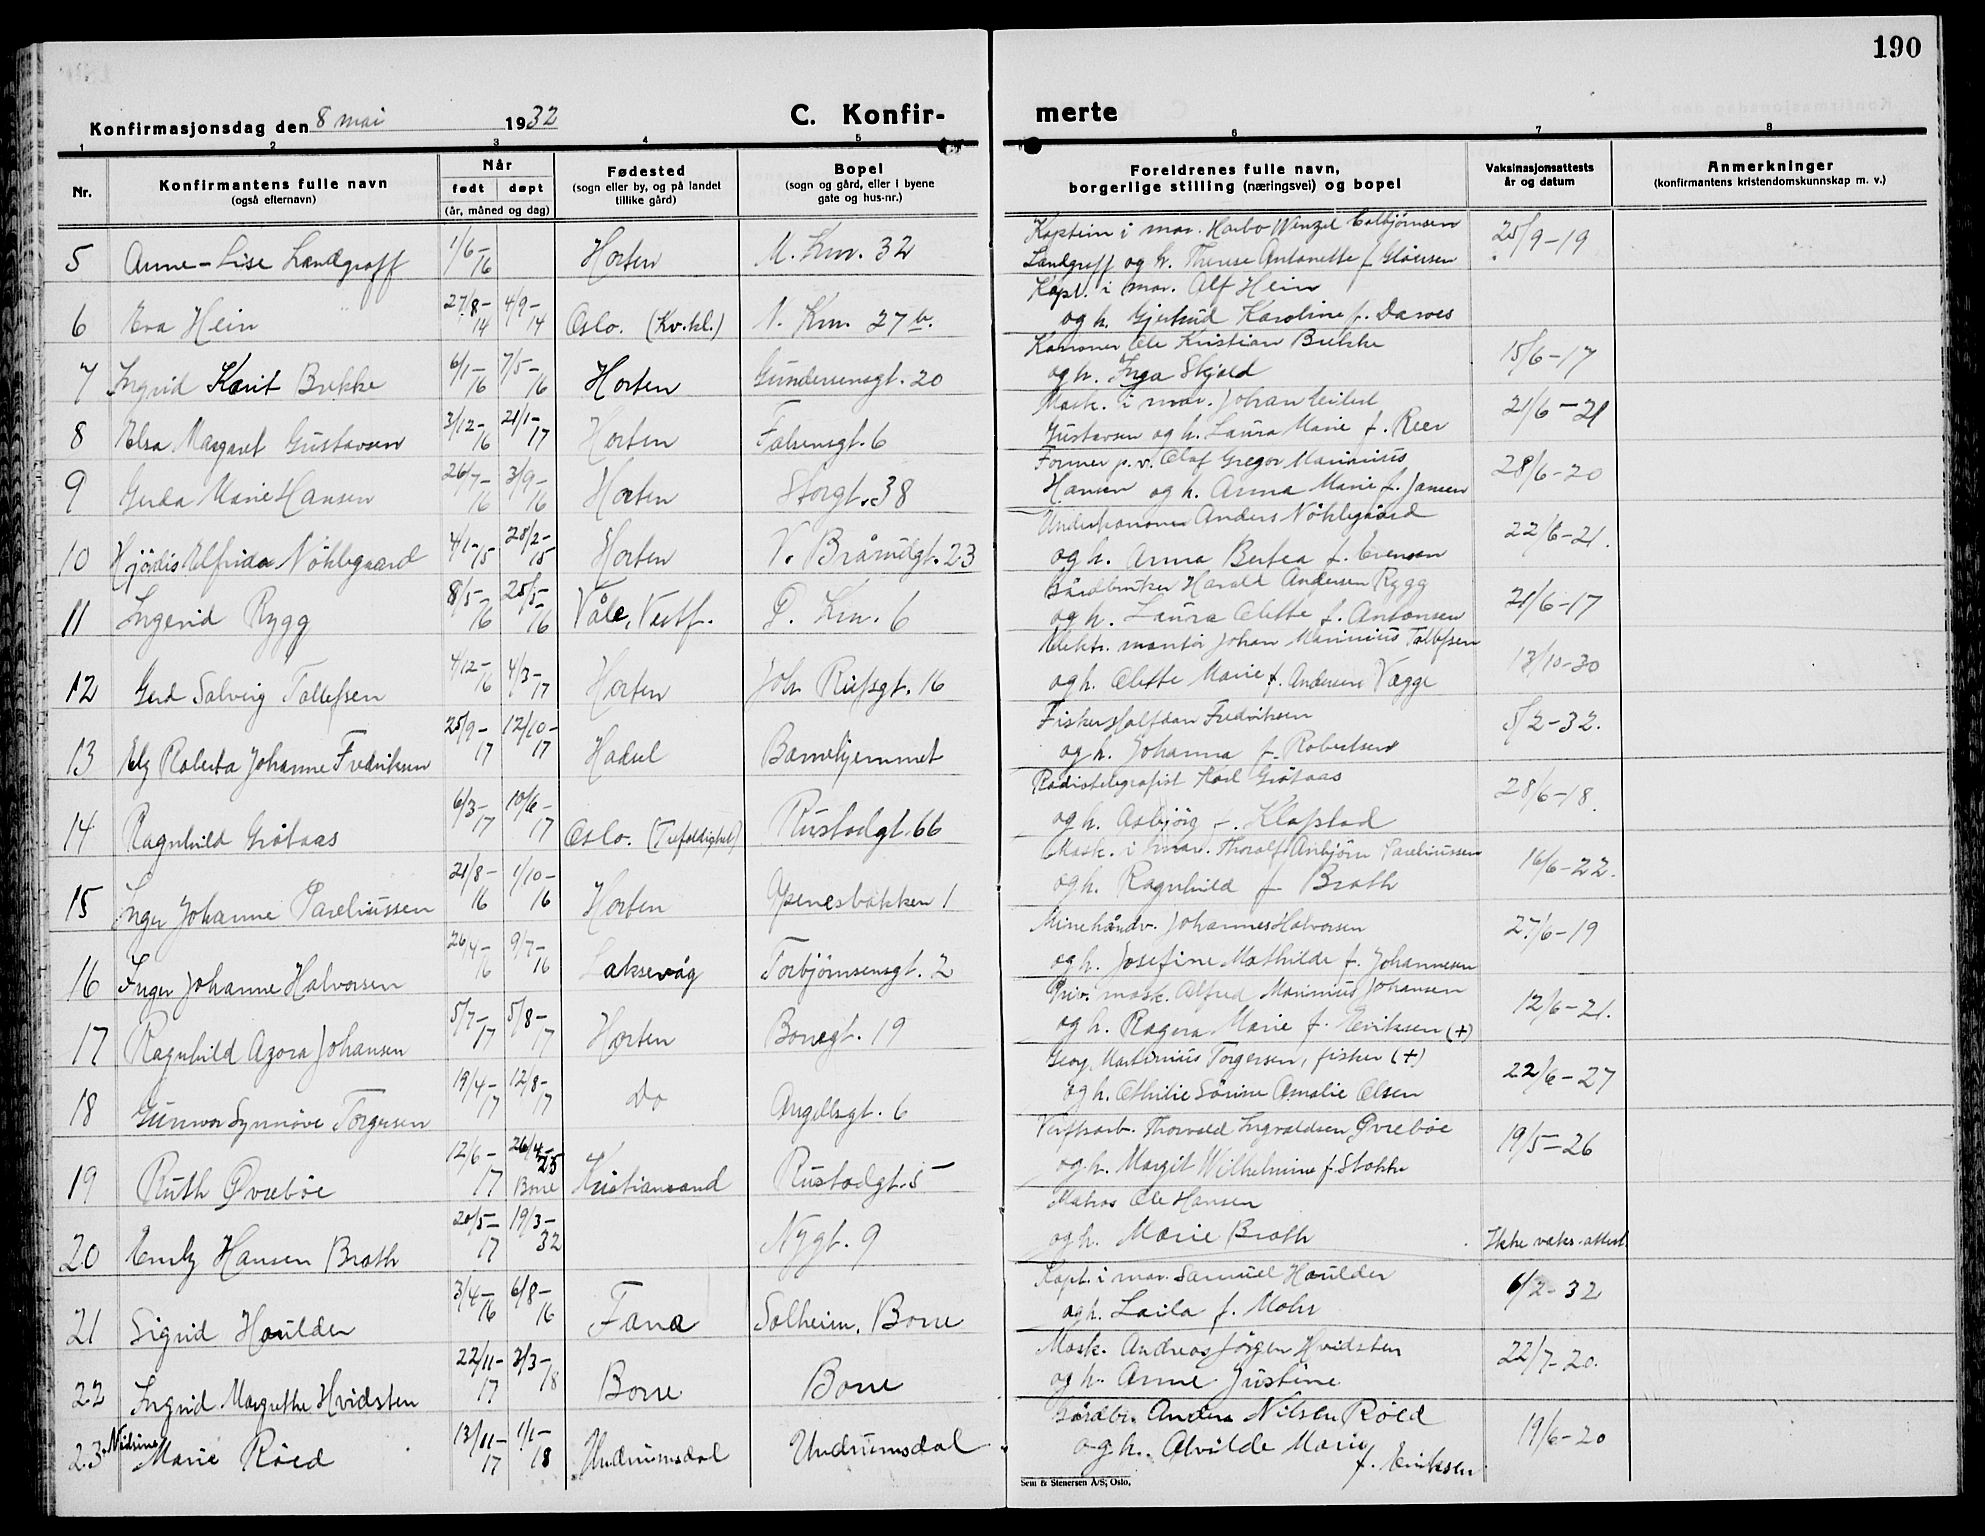 190
Konfirmasjonsdag den 8 mai 1932
C. Konfir-
merte
1 2 3 4 5 6 7 8
Nr.
Konfirmantens fulle navn
(også efternavn)
Når
født døpt
(år, måned og dag)
Fødested
(sogn eller by, og på landet
tillike gård)
Bopel
(sogn og gård, eller i byene
gate og hus-nr.)
Foreldrenes fulle navn,
borgerlige stilling (næringsvei) og bopel
Vaksinasjonsattests
år og datum
Anmerkninger
(konfirmantens kristendomskunnskap m. v.)
5 Anne-Lise Landgraff 1/6-16 Horten 32 Kaptein i mar. Harbo Wenzel Colbjørnsen
Landgraff og h. Therese Antonette f. 25/9-19
6 Eva Hein 27/8-14 4/9-14 Oslo. (Kv.kl.) 27 b. Kapt. i mar. Alf Hein
og h. Gjertrud Karoline f. Dawes
7 Ingrid Karit Brekke 6/1-16 7/5-16 Horten Gundersensgt. 20 Kanoner Ole Kristian Brekke
og h. Inga Skjold 15/6-17
8 Elsa Margaret Gustavsen 3/12-16 21/1-17 Horten Falsensgt. 6 Mask. i mar. Johan
Gustavsen og h. Laura Marie f. Reer 21/6-21
9 Gerda Marie Hansen 26/7-16 3/9-16 Horten Storgt. 38 Former p.v. Olaf Gregor Marinius
Hansen og h. Anna Marie f. Jansen 28/6-20
10 Hjördis Elfrida Nöklegaard 4/1-15 28/2-15 Horten V. Bråradgt. 23 Underkanoner Anders Nöklegaard
og h. Anna Bertea f. Evensen 22/6-21.
11 Ingerid Rygg 8/5-16 25/5-16 Våle, Vestf. 6 Gårdbruker Harald Andersen Rygg
og h. Laura Olette f. Antonsen 21/6-17
12 Gerd Solveig Tollefsen 4/12-16 4/3-17 Horten Joh. Rufsgt. 16 Elektr. montör Johan Marinius Tollefsen
og h. Olette Marie f. Andersen Vegge 13/10-30
13 Ely Roberta Johanne Fredriksen 25/9-17 12/10-17 Hadsel Barnehjemmet Fisker Halfdan Fredriksen
og h. Johanna f. Robertsen 5/2-32.
14 Ragnhild Gråtaas 6/3-17 10/6-17 Oslo. (Trefoldighet) Rustadgt. 66 Radiotelegrafist Karl Gråtaas
og h. Asbjörg f. Klafstad 28/6-18.
15 Inger Johanne Pareliussen 21/8-16 1/10-16 Horten Apenesbakken 1 Mask. i mar. Thoralf Anbjörn Pareliussen
og h. Ragnhild f. Brath 16/6-22.
16 Inger Johanne Halvorsen 26/4-16 9/7-16 Laksevåg Torbjørnsensgt. 2 Minehåndv. Johannes Halvorsen
og h. Josefine Mathilde f. Johannesen 27/6-19
17 Ragnhild Agora Johansen 5/7-17 5/8-17 Horten Borregt. 19 Priv. mask. Alfred Marinius Johansen
og h. Ragna Marie f. Eriksen (+) 12/6-21.
18 Gunvor Synnöve Torgersen 19/4-17 12/8-17 Do Angellsgt. 6 Georg Martinius Torgersen, fisker (+)
og h. Othilie Sörine Amalie Olsen 22/6-27
19 Ruth Øvrebøe 12/6-17 26/4-25 Borre Kristiansand Rustadgt. 5 Verftsarb. Thorvald Ingvaldsen Øvrebøe
og h. Margit Wilhelmine f. Stokke 19/5-26
20 Emly Hansen Brath 20/5-17 19/3-32 Nygt. 9 Matros Ole Hansen
og h. Marie Brath Ikke vaks.attest
21 Sigrid Houlder 3/4-16 6/8-16 Fana Solheim, Borre Kapt. i mar. Samuel Houlder
og h. Laila f. Mohr 6/2-32
22 Ingrid Margrethe Hvidsten 22/11-17 3/3-18 Borre Borre Mask. Andreas Jörgen Hvidsten
og h. Anne Justine 22/7-20.
23 Nidrine Marie Röed 13/11-17 1/1-18 Undrumsdal Undrumsdal Gårdbr. Anders Nilsen Röed
og h. Alvilde Marie
f. Eriksen 19/6-20
Sem & Stenersen A/S, Oslo.